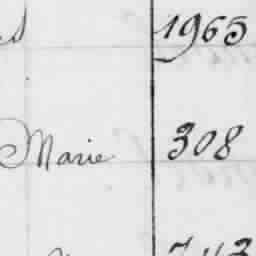 1965
Marie 308
743